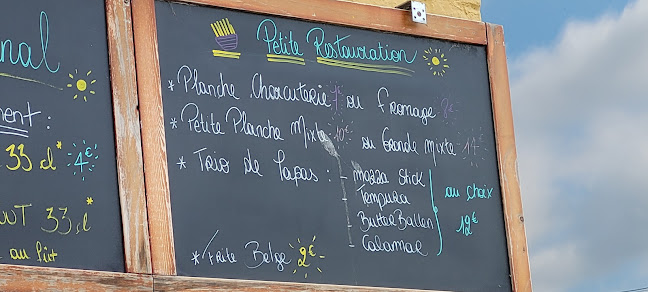 nal
ment :
33 cl * 4€
*
OUT 33 cl
au fût
Petite Restauration
* Planche Charcuterie ou Fromage
* Petite Planche Mixte 10€ ou Grande Mixte
* Trio de Tapas : - mozza Stick
- Tempura
- ButterBallen
- Calamar
au choix
12€
* Frite Belge 2€